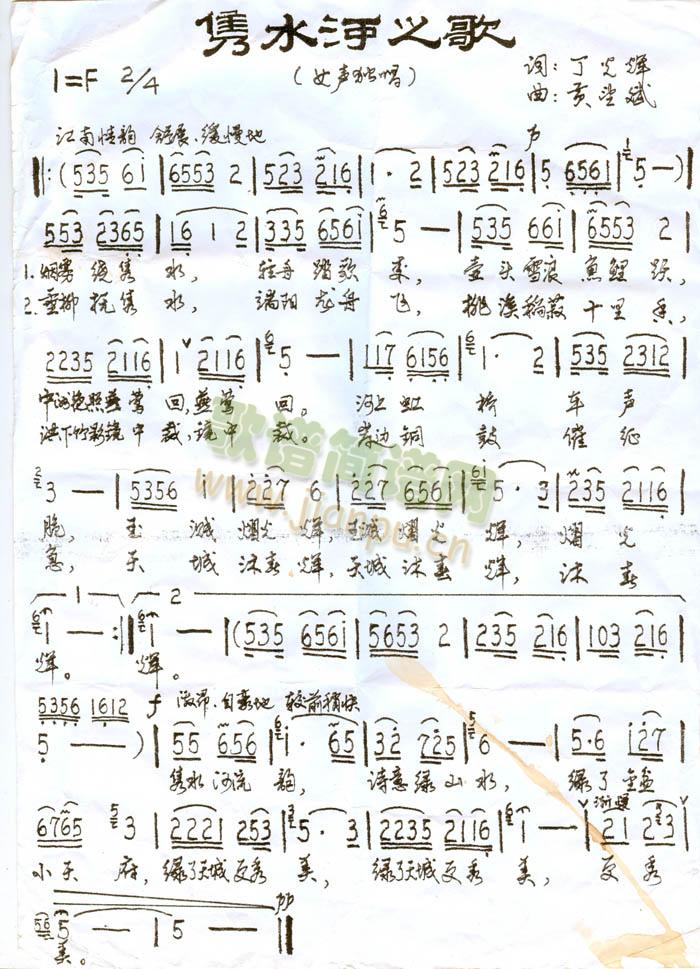 隽水河之歌
（女声独唱）
1=F 2/4
词：丁光辉
曲：黄
江南情韵 舒展、缓慢地
‖:(535 6i | 6553 2 | 523 2216 | 1·2 | 523 2216 | 5 6561 | 5 —)|
553 2365 | 16 1 2 | 335 656i | 5 — | 535 66i | 6553 2 |
1. 烟雾绕隽水， 踏歌来， 壶头雪浪鱼鲤跃，
2. 垂柳抚隽水， 端阳龙舟飞， 桃溪稻菽十里香，
2235 2116 | 1 2116 | 5 — | 117 6156 | 1· 2 | 535 2312 |
照燕莺回，燕莺回。 河上虹桥车声
竹影镜中裁，镜中裁。 岸边铜鼓催征
3 — | 5356 i | 227 6 | 227 656i | 5· 3 | 2235 2116 |
脆， 玉城熠光辉，玉城熠光辉，熠光
急， 天城沐春辉，天城沐春辉，沐春
1 2
1 — :‖ 1 — | (535 656i | 5653 2 | 235 216 | 103 216 |
辉。 辉。
5356 1612 f 激昂、自豪地 较前稍快
5 — ) | 55 656 | i· 65 | 32 725 | 6 — | 5·6 i27 |
隽水河流韵， 诗意绿山水， 绿了
渐慢
6765 3 | 2221 253 | 5· 3 | 2235 2116 | 1 — | 21 23 |
小天府，绿了天城更秀美， 绿了天城更秀美， 更秀
pp
5 — | 5 — ‖
美。
歌谱简谱网
www.jianpu.cn